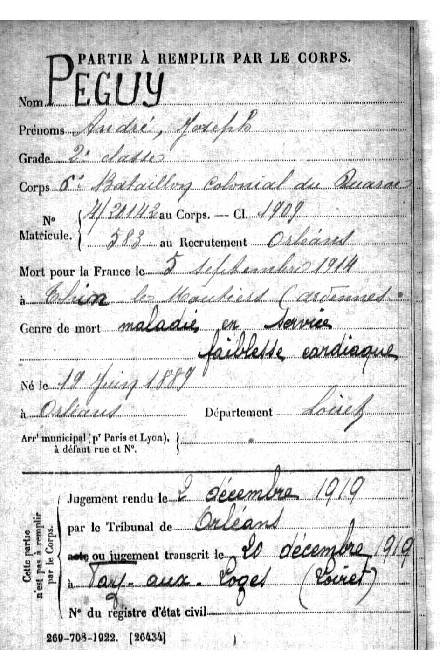 PARTIE À REMPLIR PAR LE CORPS.
Nom PEGUY
Prénoms André, Joseph
Grade 2e classe
Corps 6e Bataillon Colonial du Maroc
N° Matricule. { 4/21142 au Corps. — Cl. 1909
583 au Recrutement Orléans
Mort pour la France le 5 septembre 1914
à Thin le Moutiers (Ardennes
Genre de mort maladie en service
faiblesse cardiaque
Né le 19 Juin 1889
à Orléans Département Loiret
Arrt municipal (pr Paris et Lyon),
à défaut rue et N°.
Cette partie n'est pas à remplir par le Corps.
Jugement rendu le 2 décembre 1919
par le Tribunal de Orléans
acte ou jugement transcrit le 20 décembre 1919
à Fay-aux-Loges (Loiret)
N° du registre d'état civil
269-708-1922. [26434]